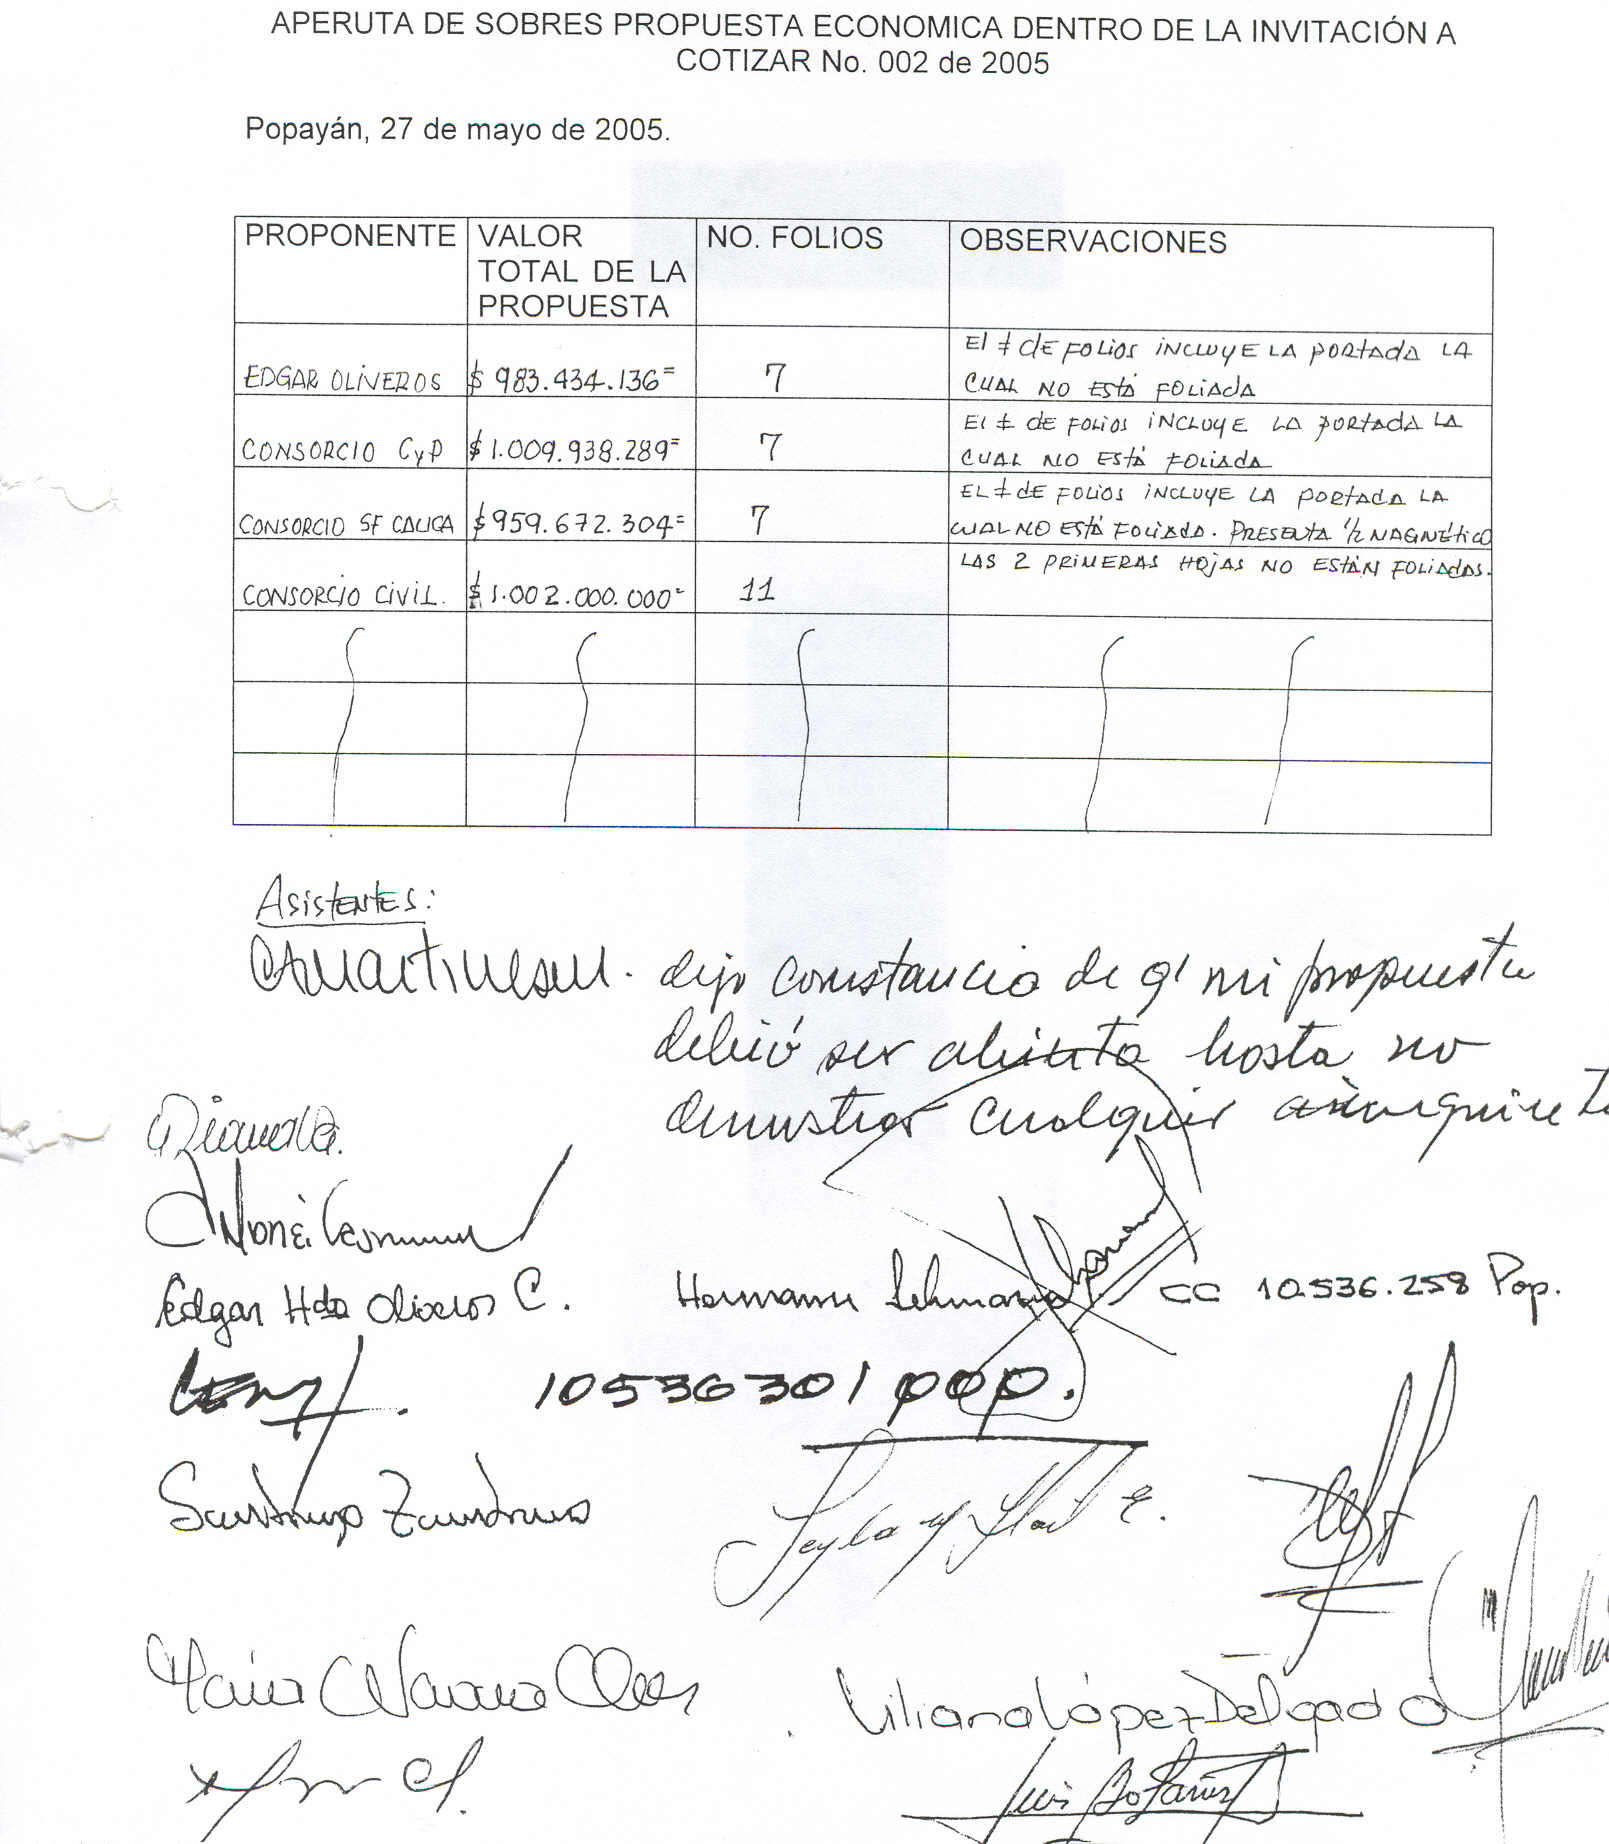 APERUTA DE SOBRES PROPUESTA ECONOMICA DENTRO DE LA INVITACIÓN A
COTIZAR No. 002 de 2005
Popayán, 27 de mayo de 2005.
PROPONENTE VALOR TOTAL DE LA PROPUESTA NO. FOLIOS OBSERVACIONES
EDGAR OLIVEROS $ 983.434.136= 7 El # de FOLIOS INCLUYE LA PORTADA LA
CUAL NO ESTÁ FOLIADA
CONSORCIO CyP $ 1.009.938.289= 7 El # DE FOLIOS INCLUYE LA PORTADA LA
CUAL NO ESTÁ FOLIADA
CONSORCIO SF CALIGA $ 959.672.304= 7 EL # dE FOLIOS INCLUYE LA PORTADA LA
CUAL NO ESTÁ FOLIADA. PRESENTA 1/2 MAGNÉTICO
CONSORCIO CIVIL. $ 1.002.000.000= 11 LAS 2 PRIMERAS HOJAS NO ESTÁN FOLIADAS.
Asistentes:
dejo constancia de q' mi propuesta
debió ser abierta hasta no
demostrar cualquier
Edgar Hdo Oliveros C. Hermann Lehmann CC 10.536.258 Pop.
10536301 pop.
Liliana López Delgado
Luis Bolaños